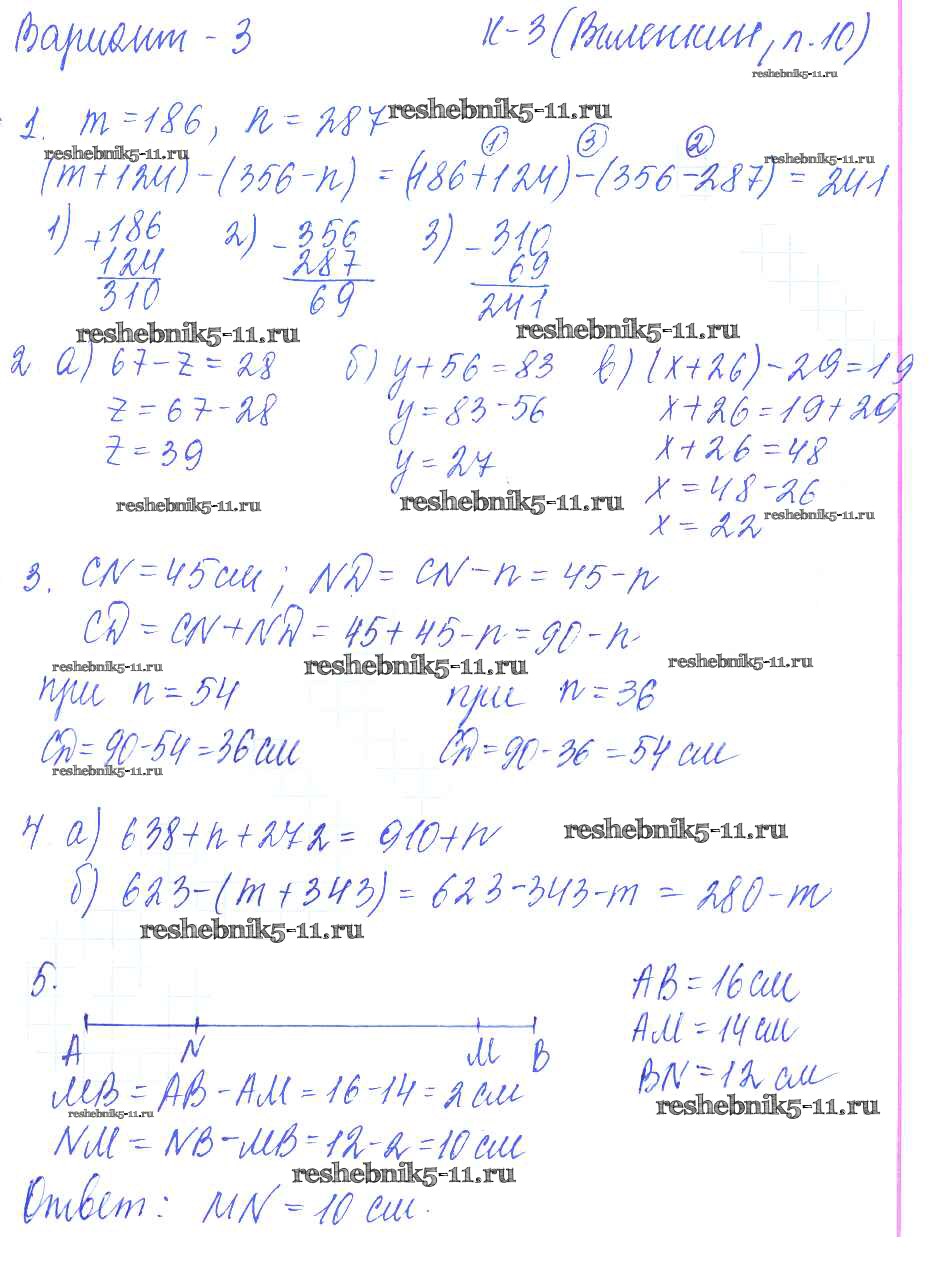 Вариант - 3 К-3 (Виленкин, п.10)
reshebnik5-11.ru
1. m = 186, n = 287 reshebnik5-11.ru
1 3 2
reshebnik5-11.ru reshebnik5-11.ru
(m+124)-(356-n) = (186+124)-(356-287) = 241
1) + 186 2) - 356 3) - 310
124 287 69
310 69 241
reshebnik5-11.ru reshebnik5-11.ru
2 а) 67-z = 28 б) y+56 = 83 в) (x+26)-29 = 19
z = 67-28 y = 83-56 x+26 = 19+29
z = 39 y = 27 x+26 = 48
reshebnik5-11.ru reshebnik5-11.ru x = 48-26
x = 22 reshebnik5-11.ru
3. CN = 45см; ND = CN-n = 45-n
CD = CN+ND = 45+45-n = 90-n
reshebnik5-11.ru reshebnik5-11.ru reshebnik5-11.ru
при n = 54 при n = 36
CD = 90-54 = 36см CD = 90-36 = 54 см
reshebnik5-11.ru
4. а) 638+n+272 = 910+n reshebnik5-11.ru
б) 623-(m+343) = 623-343-m = 280-m
reshebnik5-11.ru
5. AB = 16см
AM = 14см
A N M B
MB = AB-AM = 16-14 = 2см BN = 12 см
reshebnik5-11.ru reshebnik5-11.ru
NM = NB-MB = 12-2 = 10см
reshebnik5-11.ru
Ответ: MN = 10 см.